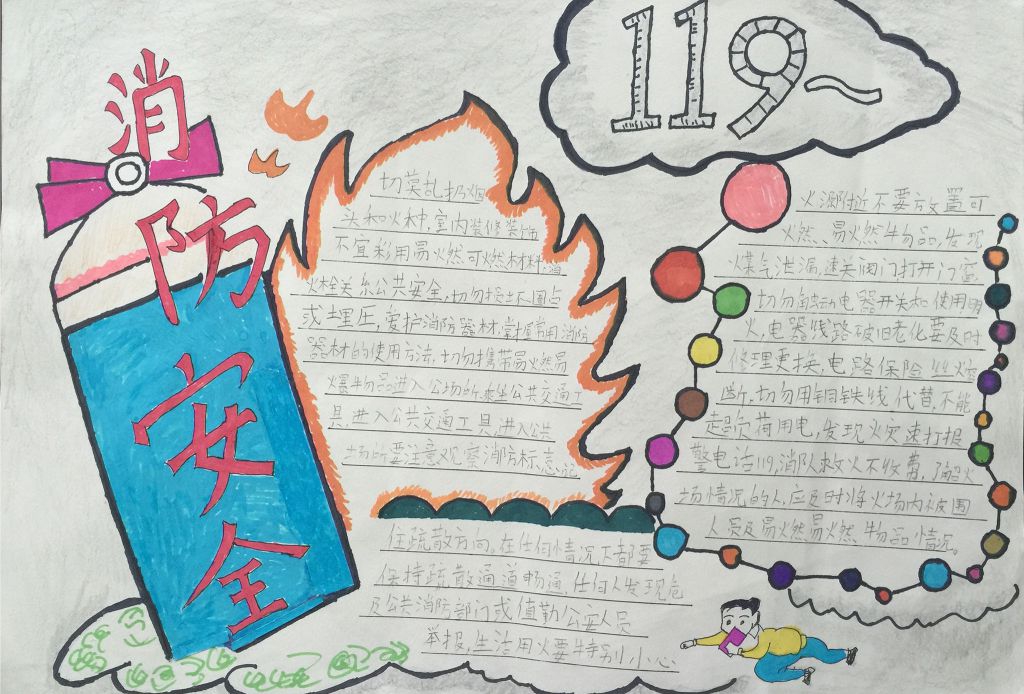 消
防
安
全
119~
切莫乱扔烟
头和火柴,室内装修装饰
不宜彩用易火燃、可燃材料,消
火栓关系公共安全,切勿损坏、圈占
或埋压,爱护消防器材,掌握常用消防
器材的使用方法,切勿携带易火燃易
爆物品进入公场所、乘坐公共交通工
具,进入公共交通工具,进入公共
场所要注意观察消防标志,记
住疏散方向。在任何情况下都要
保持疏散通道畅通,任何人发现危
及公共消防部门或值勤公安人员
举报,生活用火要特别小心
火源附近不要放置可
火燃、易火燃物品,发现
煤气泄漏,速关阀门打开门窗,
切勿触动电器开关和使用明
火,电器线路破旧老化要及时
修理更换,电路保险丝熔
断,切勿用铜铁线代替,不能
超负荷用电,发现火灾速打报
警电话119,消队救火不收费,了解火
场情况的人,应及时将火场内被围
人员及易火燃易火燃、物品情况。